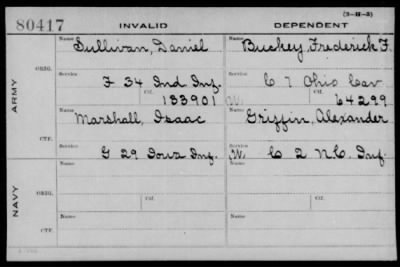 (3-M-3)
80417 INVALID DEPENDENT
Name Sullivan, Daniel Name Buckey, Frederick F.
ARMY ORIG. Service F 34 Ind Inf. Service C 7 Ohio Cav
Ctf. 133901 W. Ctf. 64299
Name Marshall, Isaac Name Griffin, Alexander
CTF. Service G 29 Iowa Inf. W. Service C 2 N.C. Inf.
NAVY ORIG. Name Ctf. Name Ctf.
CTF. Name Name